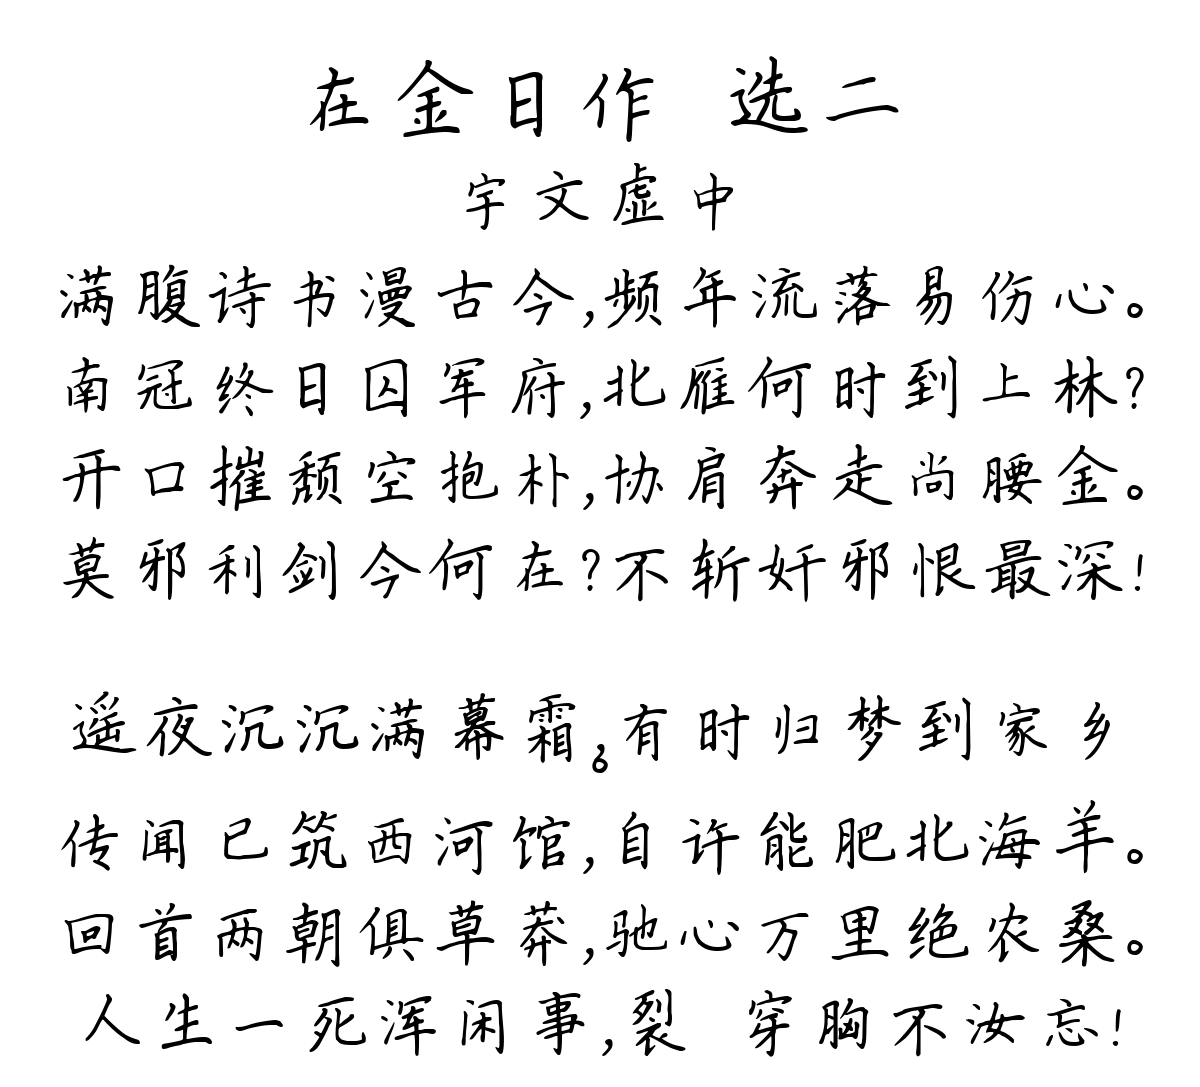 在金日作 选二
宇文虚中
满腹诗书漫古今,频年流落易伤心。
南冠终日囚军府,北雁何时到上林?
开口摧颓空抱朴,协肩奔走尚腰金。
莫邪利剑今何在?不斩奸邪恨最深!
遥夜沉沉满幕霜,。有时归梦到家乡
传闻已筑西河馆,自许能肥北海羊。
回首两朝俱草莽,驰心万里绝农桑。
人生一死浑闲事,裂 穿胸不汝忘!